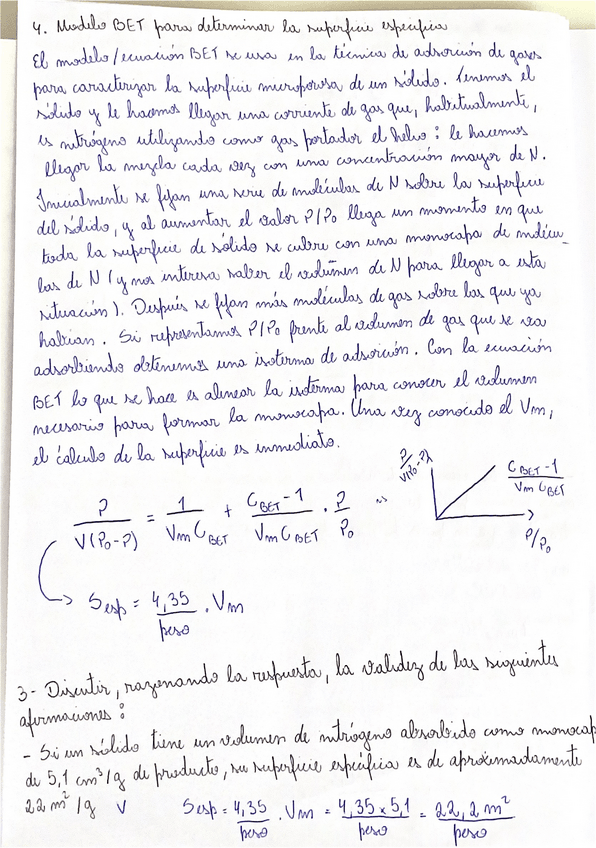 4. Modelo BET para determinar la superficie específica
El modelo/ecuación BET se usa en la técnica de adsorción de gases
para caracterizar la superficie microporosa de un sólido. Tenemos el
sólido y le hacemos llegar una corriente de gas que, habitualmente,
es nitrógeno utilizando como gas portador el helio: le hacemos
llegar la mezcla cada vez con una concentración mayor de N.
Inicialmente se fijan una serie de moléculas de N sobre la superficie
del sólido, y al aumentar el valor P/P₀ llega un momento en que
toda la superficie de sólido se cubre con una monocapa de molécu_
las de N (y nos interesa saber el volumen de N para llegar a esta
situación). Después se fijan más moléculas de gas sobre las que ya
habían. Si representamos P/P₀ frente al volumen de gas que se va
adsorbiendo obtenemos una isoterma de adsorción. Con la ecuación
BET lo que se hace es alinear la isoterma para conocer el volumen
necesario para formar la monocapa. Una vez conocido el Vm,
el cálculo de la superficie es inmediato.
P/V(P₀-P) = 1/Vm C_BET + C_BET - 1/Vm C_BET · P/P₀
P/V(P₀-P)
C_BET - 1/Vm C_BET
P/P₀
S_esp = 4,35/peso · Vm
3- Discutir, razonando la respuesta, la validez de las siguientes
afirmaciones:
- Si un sólido tiene un volumen de nitrógeno absorbido como monocap
de 5,1 cm³/g de producto, su superficie específica es de aproximadamente
22 m²/g V S_esp = 4,35/peso · Vm = 4,35 x 5,1/peso = 22,2 m²/peso